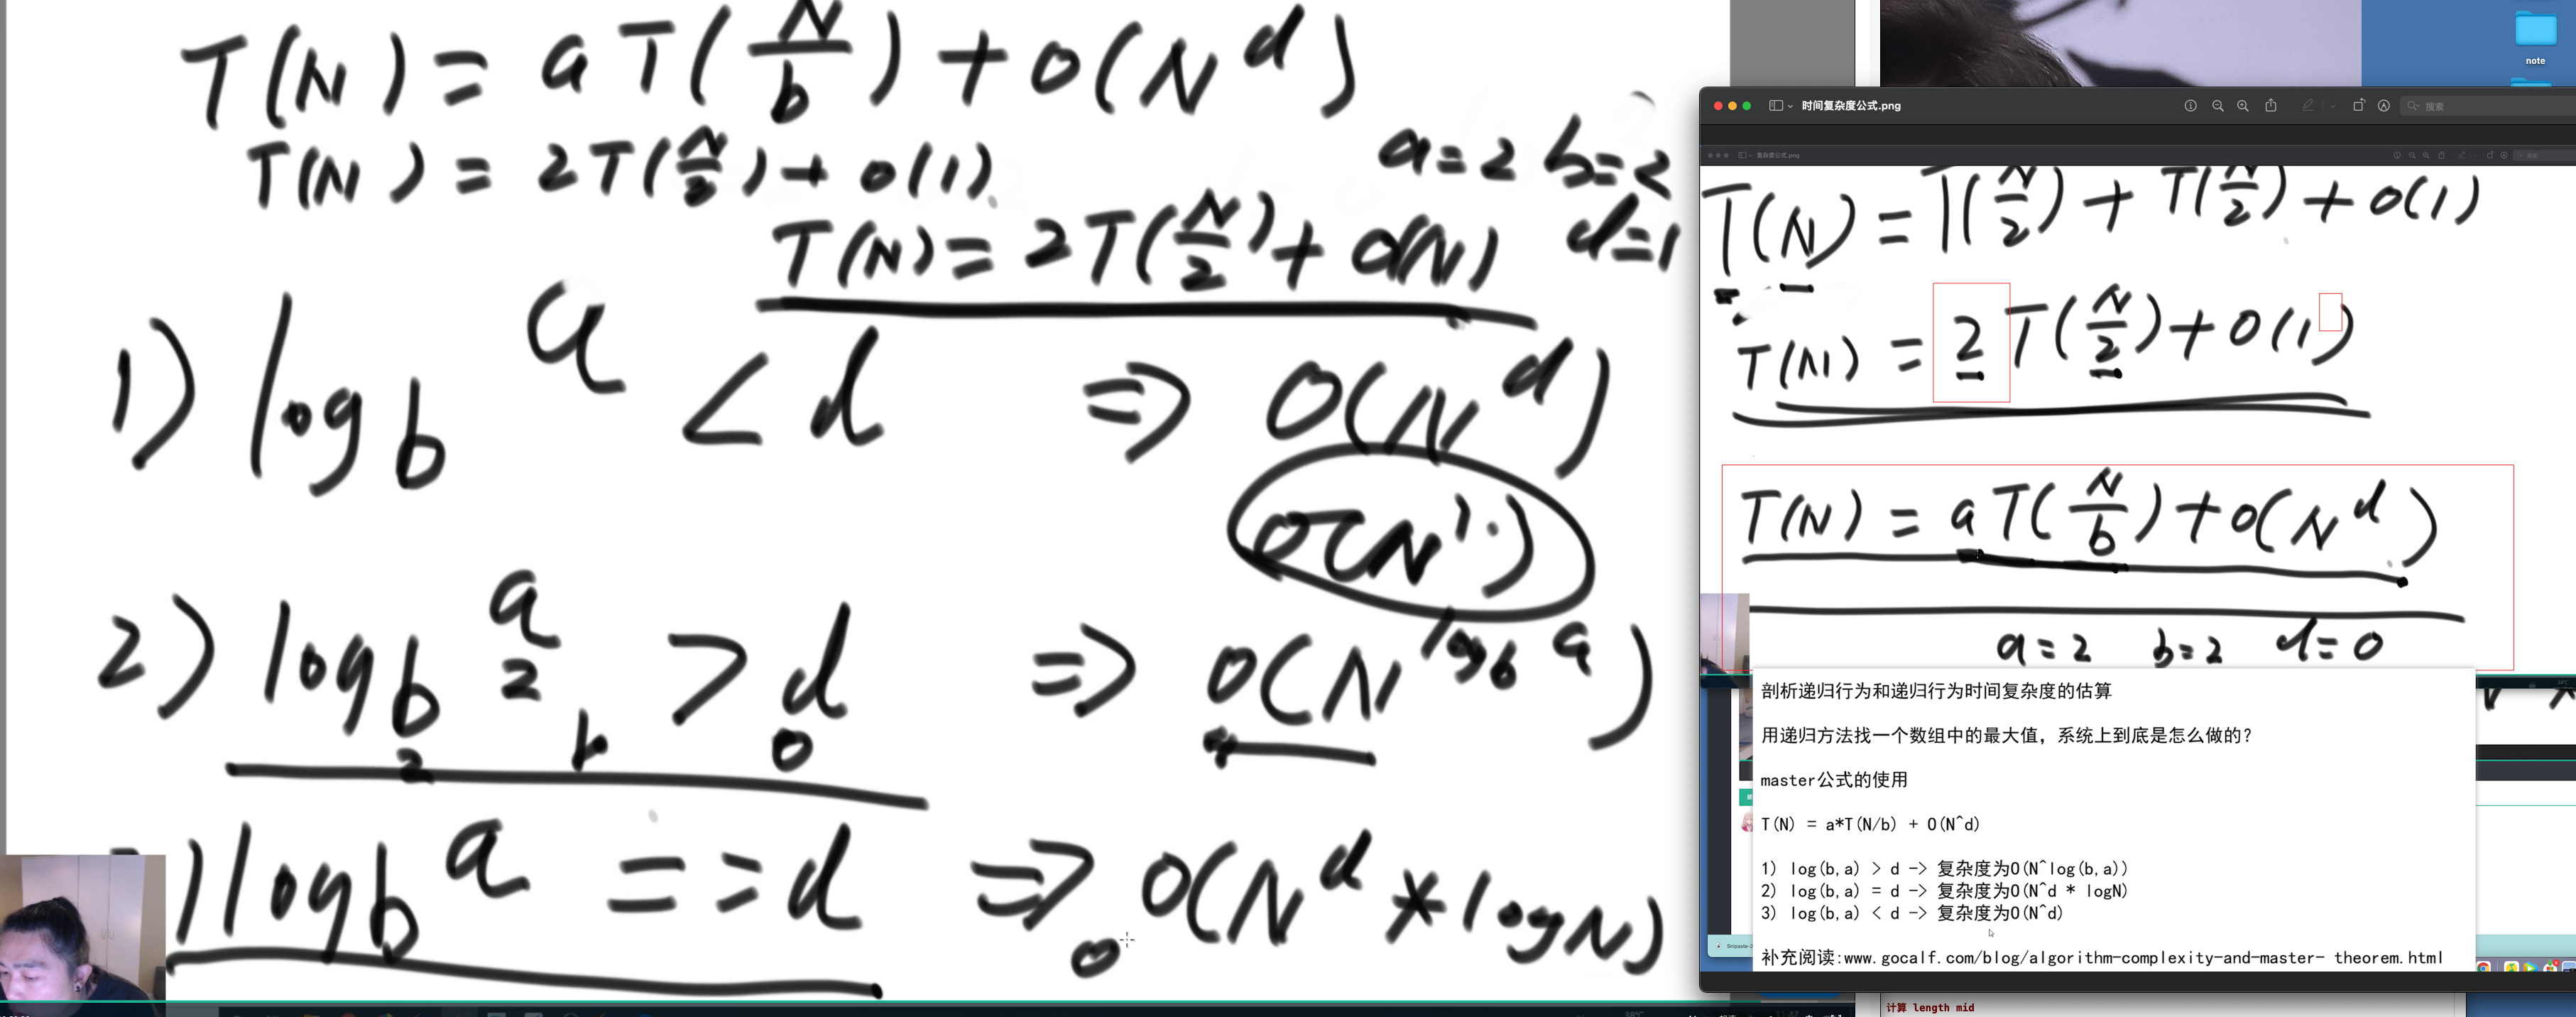 T(N) = aT(N/b) + O(N^d)
T(N) = 2T(N/2) + O(1)
a=2 b=2
d=1
T(N) = 2T(N/2) + O(N)
1) log_b a < d ⇒ O(N^d)
O(N^1)
2) log_b a > d ⇒ O(N^log_b a)
2
2
0
) log_b a == d ⇒ O(N^d * logN)
note
时间复杂度公式.png
搜索
复杂度公式.png
T(N) = T(N/2) + T(N/2) + O(1)
T(N) = 2T(N/2) + O(1)
T(N) = aT(N/b) + O(N^d)
a=2 b=2 d=0
剖析递归行为和递归行为时间复杂度的估算
用递归方法找一个数组中的最大值，系统上到底是怎么做的？
master公式的使用
T(N) = a*T(N/b) + O(N^d)
1) log(b,a) > d -> 复杂度为O(N^log(b,a))
2) log(b,a) = d -> 复杂度为O(N^d * logN)
3) log(b,a) < d -> 复杂度为O(N^d)
补充阅读:www.gocalf.com/blog/algorithm-complexity-and-master- theorem.html
计算 length mid